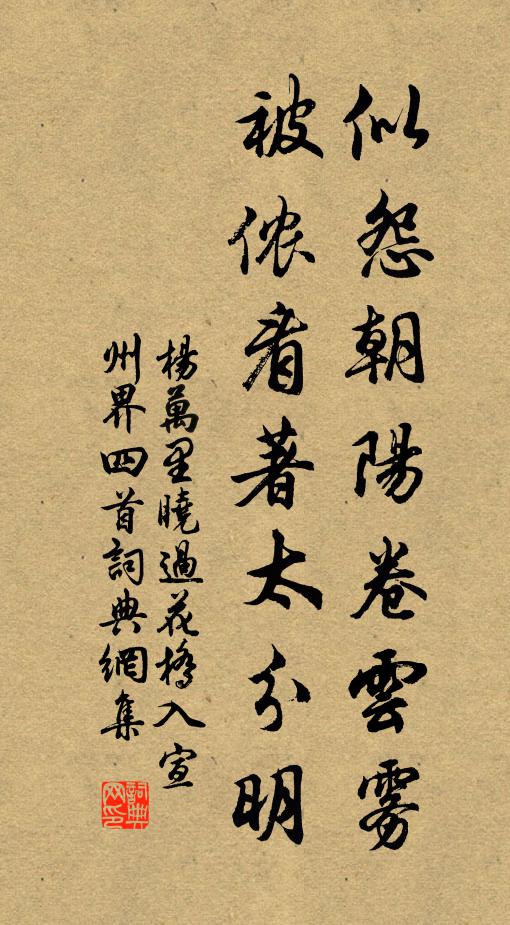 似怨朝陽卷雲雾
被侬看著太分明
楊萬里曉過花橋入宣
州界四首詞典網集
詞典
网印